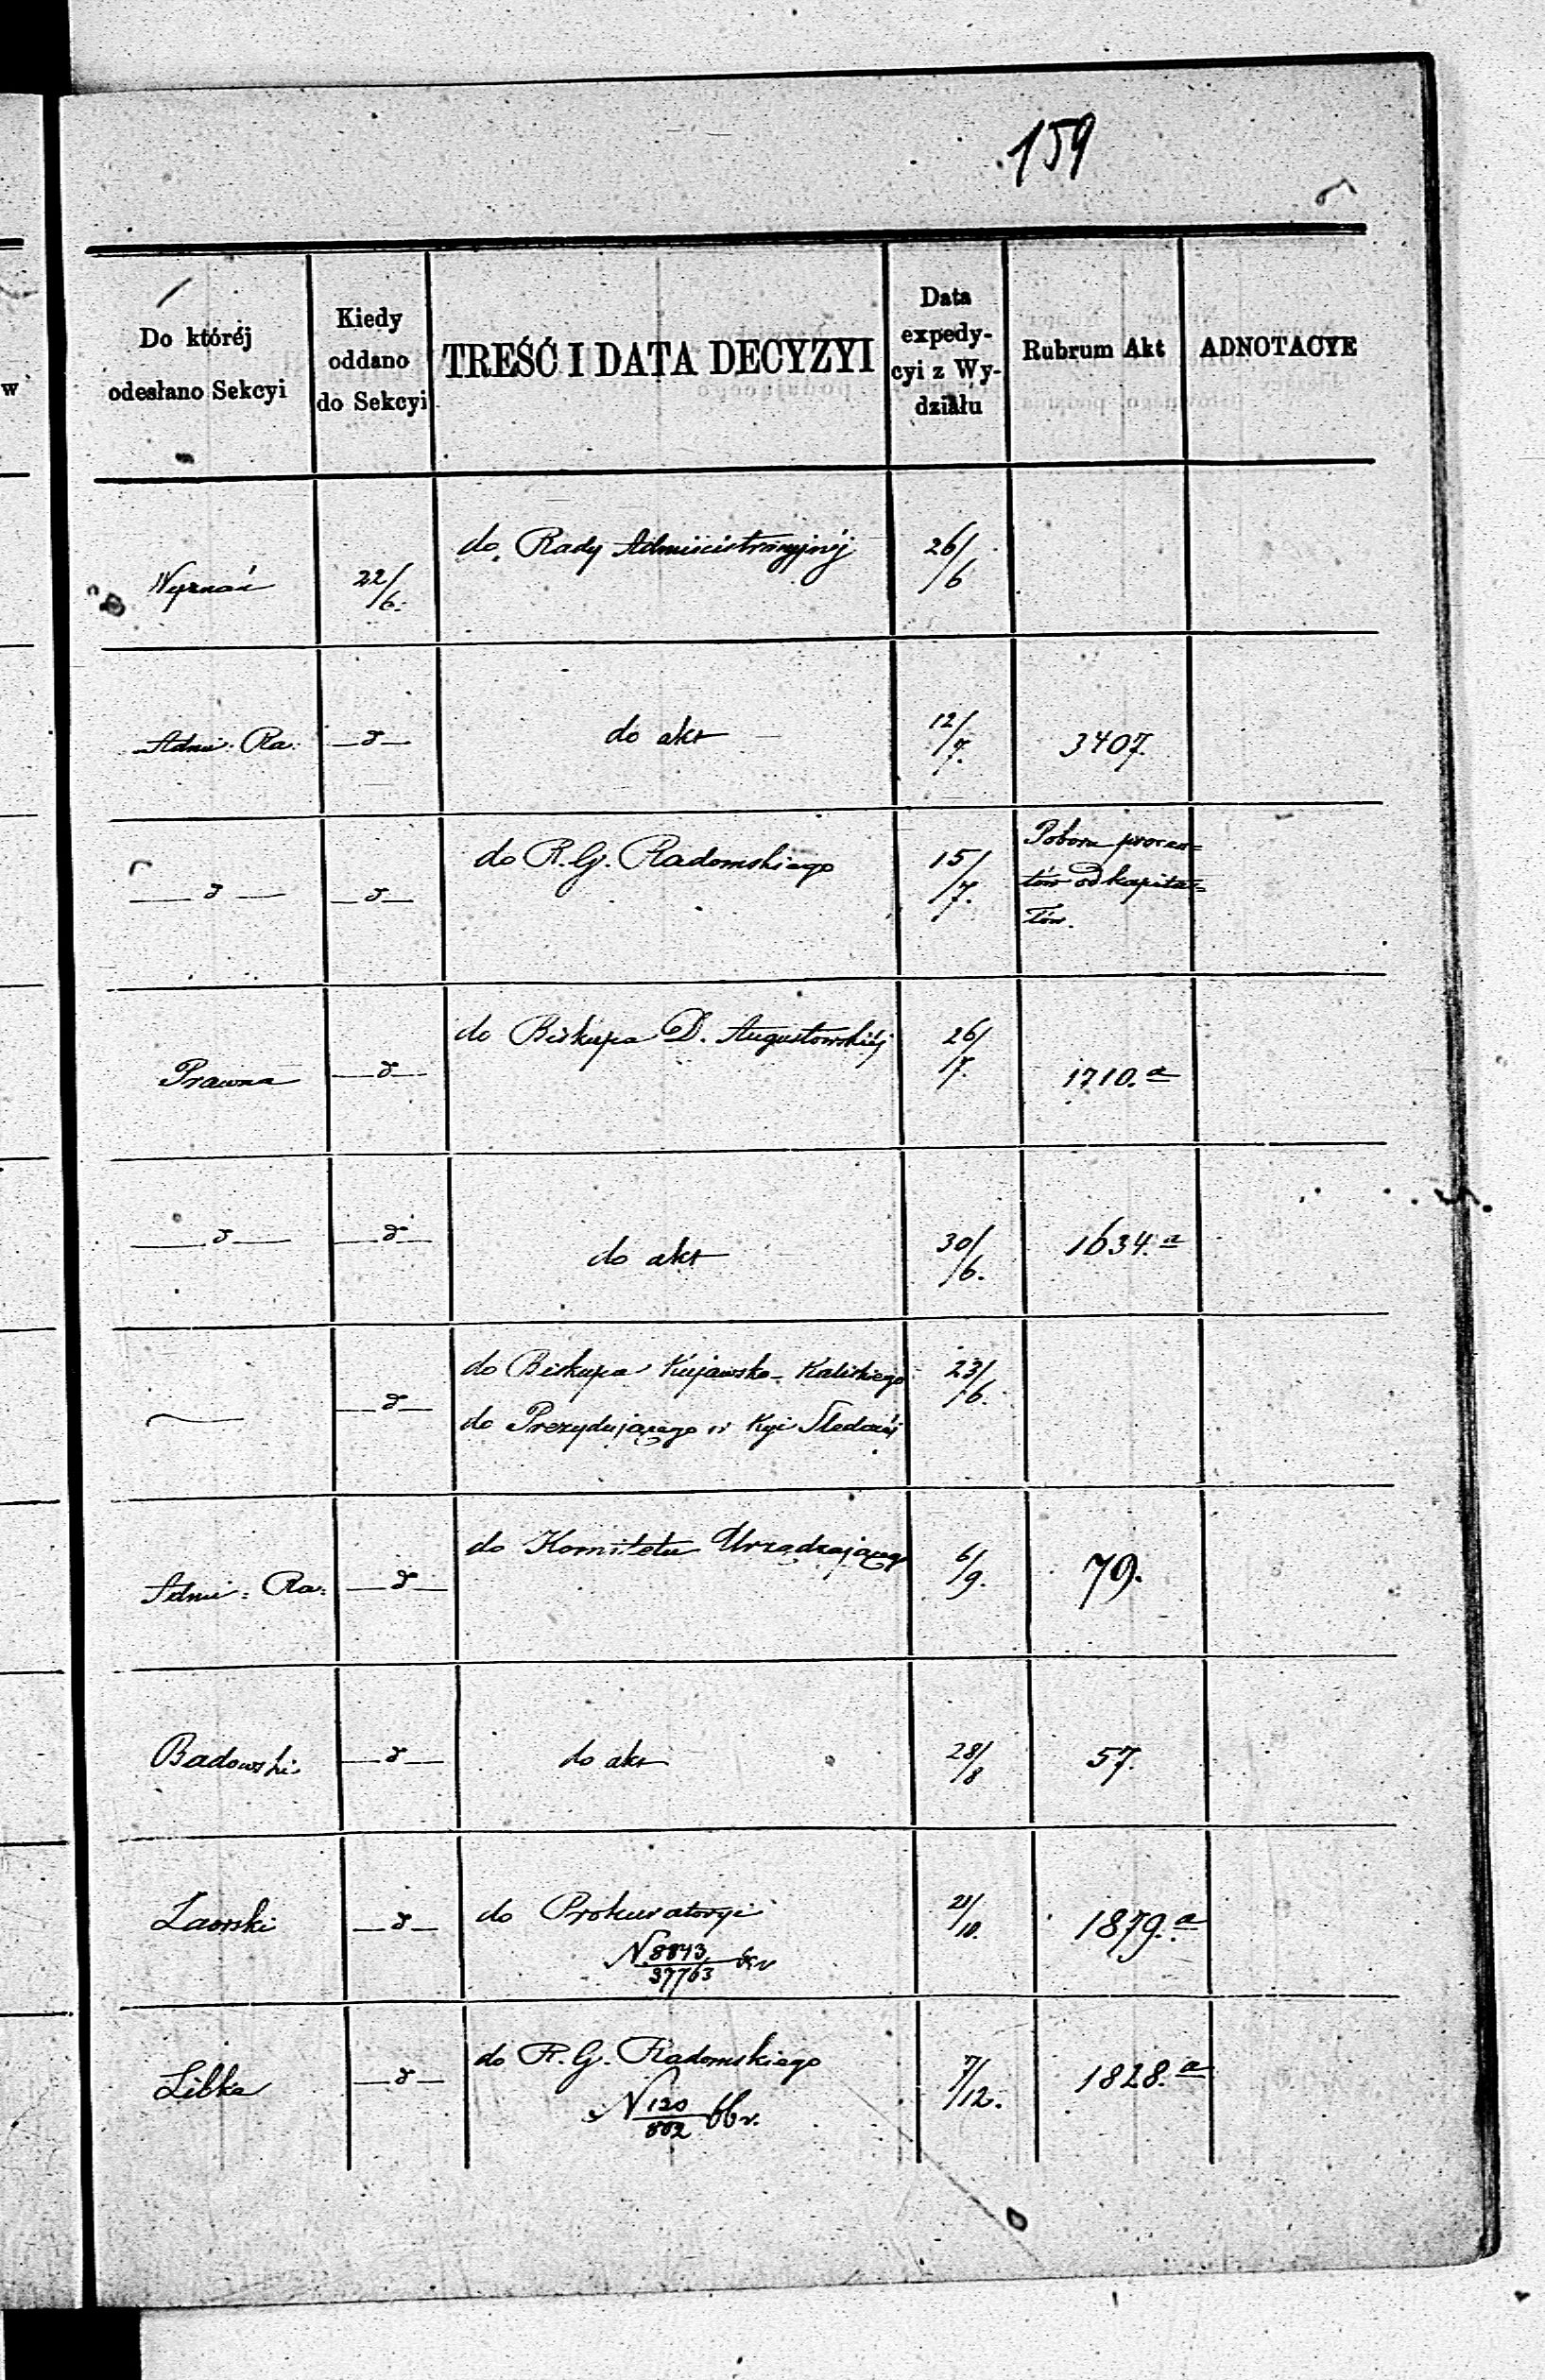 159
Do któréj
odesłano Sekcyi
Kiedy
oddano
do Sekcyi
TREŚĆ I DATA DECYZYI
Data
expedy-
cyi z Wy-
działu
Rubrum Akt
ADNOTACYE
Wyznań 22/6. do Rady Administracyjnéj 26/6
Admi: Ra: —d— do akt 12/7. 3407.
—d— —d— do R. G. Radomskiego 15/7. Poboru procen=
tów od kapita=
łów.
Prawna —d— do Biskupa D. Augustowskiéj 26/7. 1710.a
—d— —d— do akt 30/6. 1634.a
—d— do Biskupa Kujawsko-Kaliskiego 23/6.
do Prezydującego w Kyi Śledczéj
Admi: Ra: —d— do Komitetu Urządzającego 6/9. 79.
Badowski —d— do akt 28/8 57.
Zaorski —d— do Prokuratoryi 21/10. 1879.a
N 8843/37763
Libka —d— do R. G. Radomskiego 7/12. 1828.a
N 120/802 66 r.